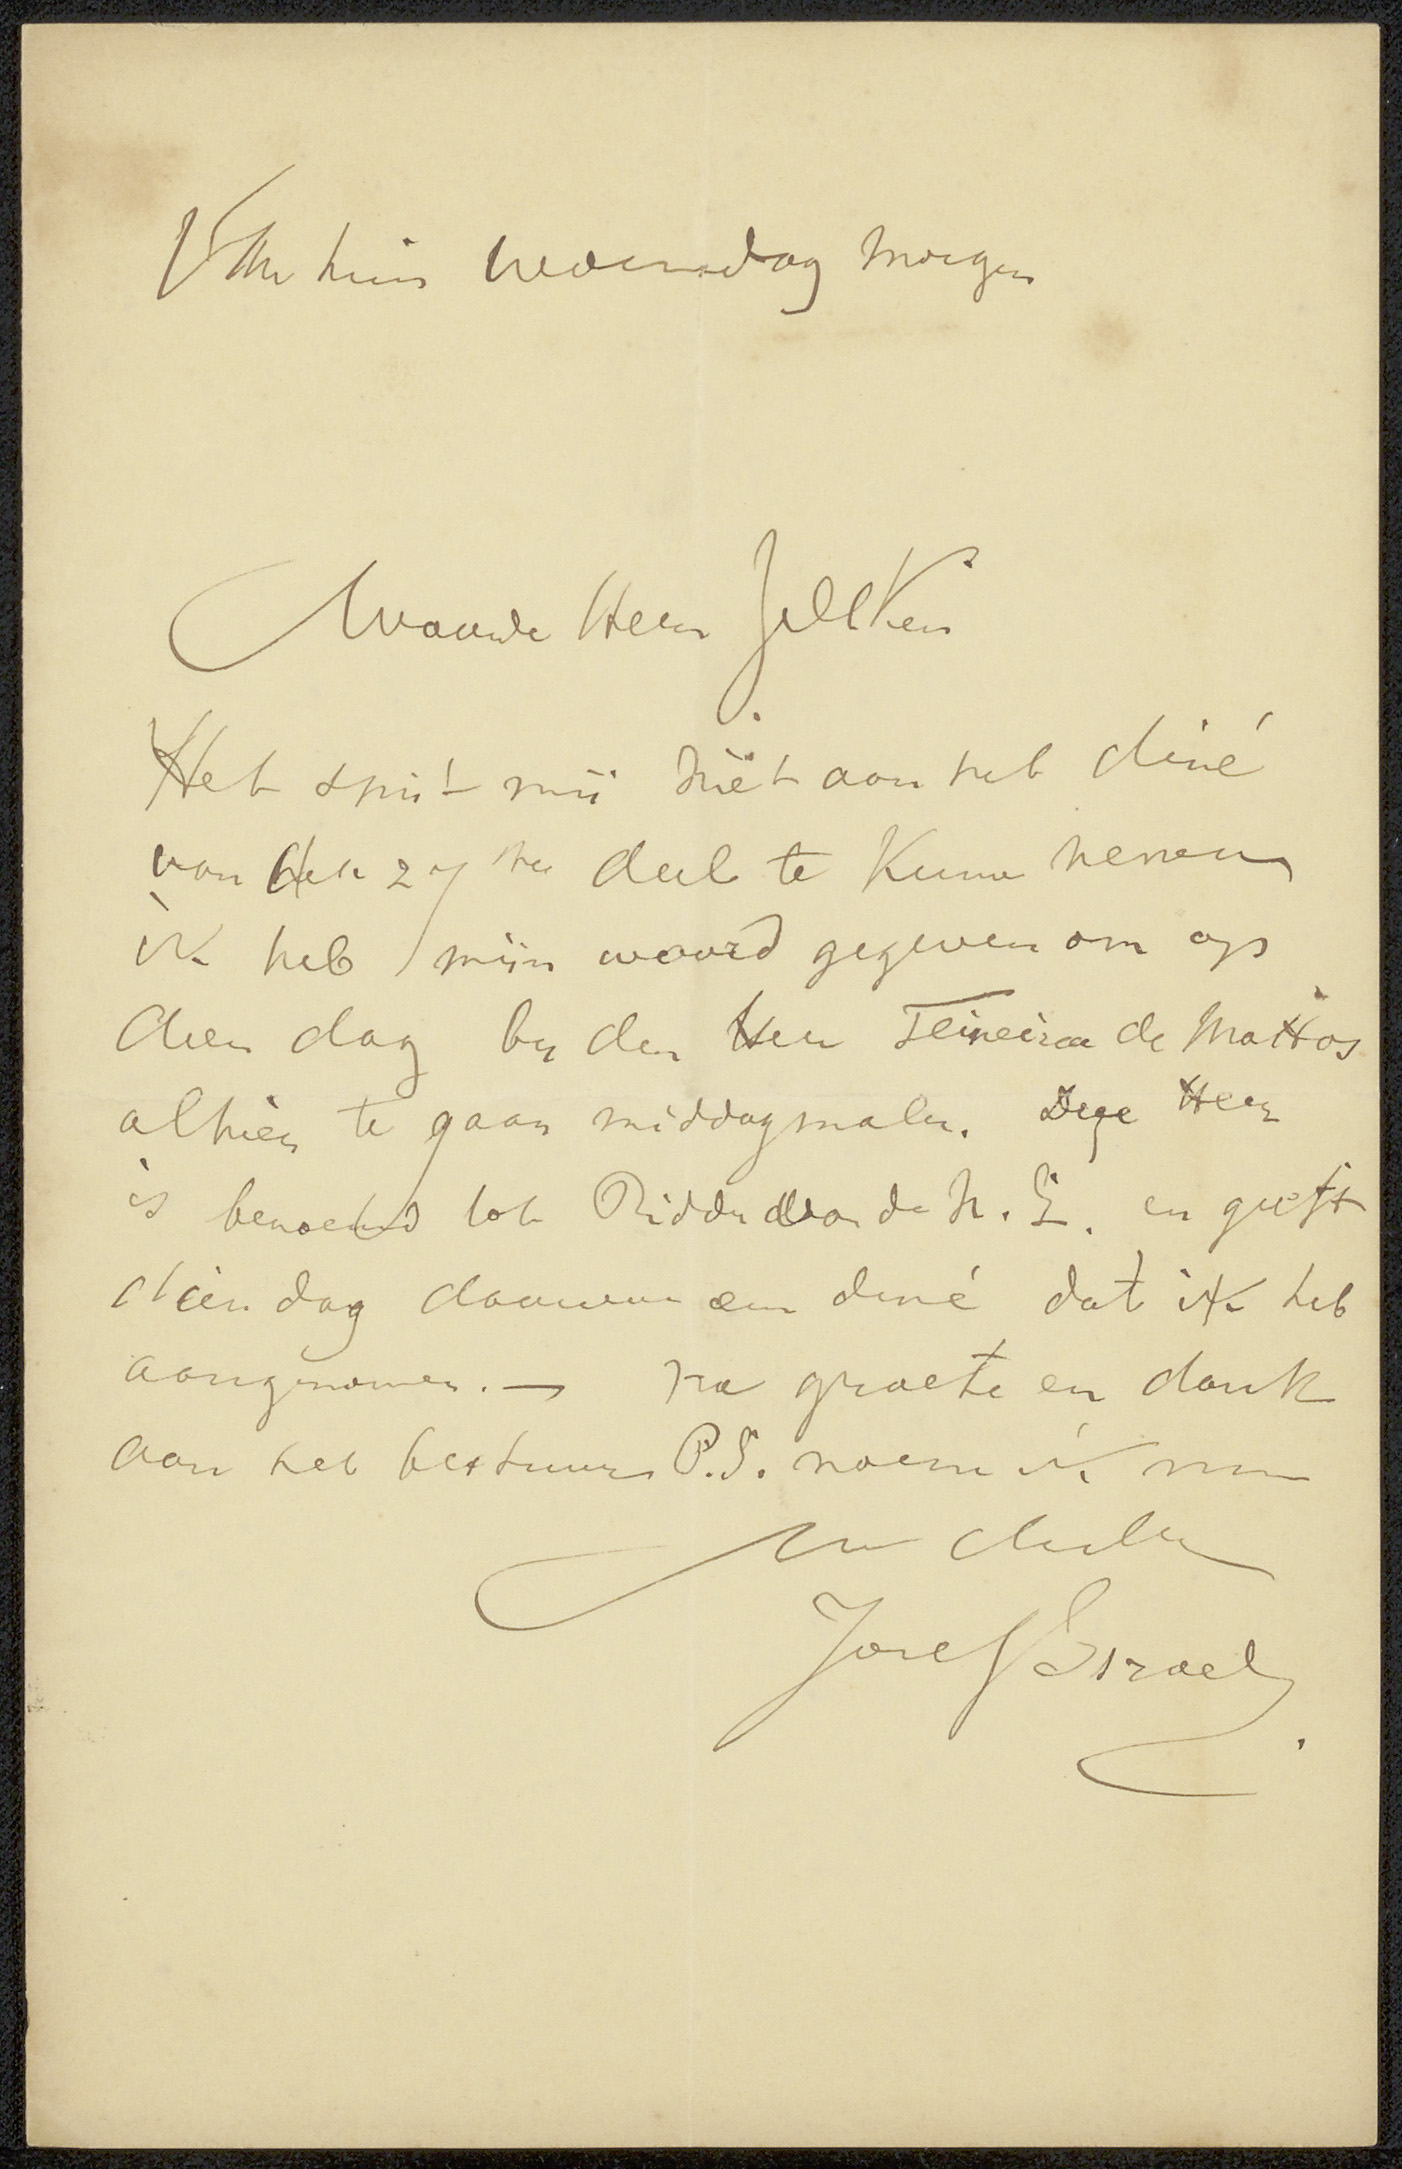 Van huis woensdag morgen
Waarde Heer Zilcken
Het spijt mij niet aan het diné
van den 27ste deel te kunnen nemen
ik heb mijn woord gegeven om op
dien dag by den Heer Teixeira de Mattos
alhier te gaan middagmalen. Deze Heer
is benoemd tot Ridder van de N. L. en geeft
dien dag daarvoor een diné dat ik heb
aangenomen. — na groete en dank
aan het bestuur P.S. noem ik mij
Uw
Jozef Israels